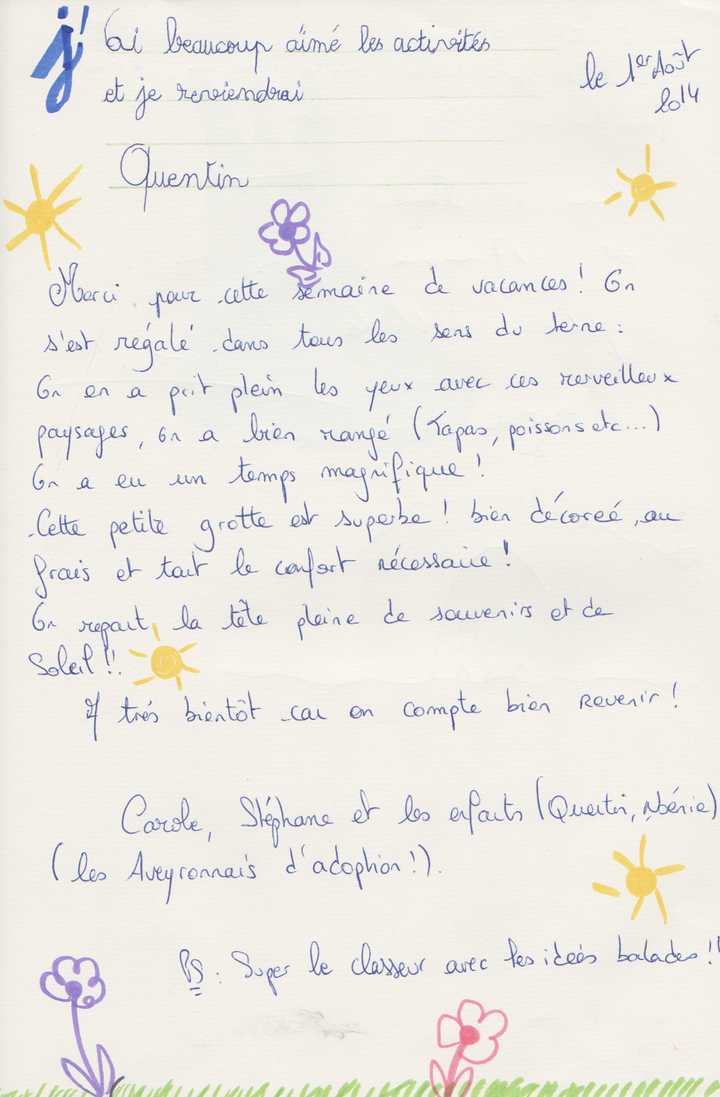 j'ai beaucoup aimé les activités
et je reviendrai
le 1er Août
2014
Quentin
Merci pour cette semaine de vacances! On
s'est régalé dans tous les sens du terme :
On en a prit plein les yeux avec ces merveilleux
paysages, on a bien mangé (Tapas, poissons etc...)
On a eu un temps magnifique!
Cette petite grotte est superbe! bien décoreé, au
frais et tout le confort nécessaire!
On repart, la tête pleine de souvenirs et de
Soleil!!
A trés bientôt car on compte bien revenir!
Carole, Stéphane et les enfants (Quentin,
(les Aveyronnais d'adoption!).
PS : Super le classeur avec les ideés balades!!